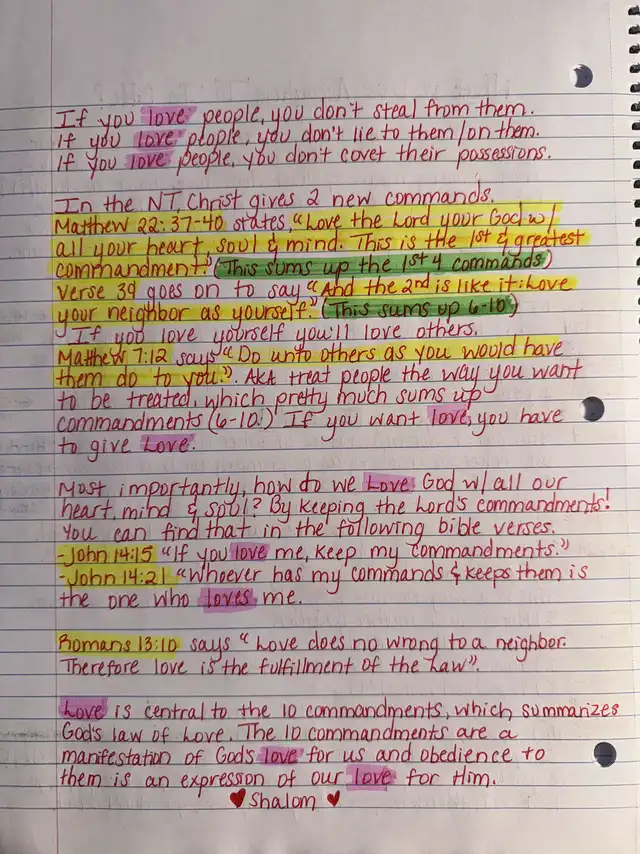 If you love people, you don't steal from them.
If you love people, you don't lie to them/on them.
If you love people, you don't covet their possessions.
In the NT, Christ gives 2 new commands.
Matthew 22:37-40 states, "Love the Lord your God w/
all your heart, soul & mind. This is the 1st & greatest
commandment." (This sums up the 1st 4 commands)
Verse 39 goes on to say "And the 2nd is like it: Love
your neighbor as yourself." (This sums up 6-10)
If you love yourself you'll love others.
Matthew 7:12 says "Do unto others as you would have
them do to you.". AKA treat people the way you want
to be treated, which pretty much sums up
commandments (6-10.) If you want love, you have
to give Love.
Most importantly, how do we Love God w/ all our
heart, mind & soul? By keeping the Lord's commandments!
You can find that in the following bible verses.
-John 14:15 "If you love me, keep my commandments."
-John 14:21 "Whoever has my commands & keeps them is
the one who loves me.
Romans 13:10 says "Love does no wrong to a neighbor.
Therefore love is the fulfillment of the Law".
Love is central to the 10 commandments, which summarizes
God's law of Love. The 10 commandments are a
manifestation of God's love for us and obedience to
them is an expression of our love for Him.
♥ Shalom ♥